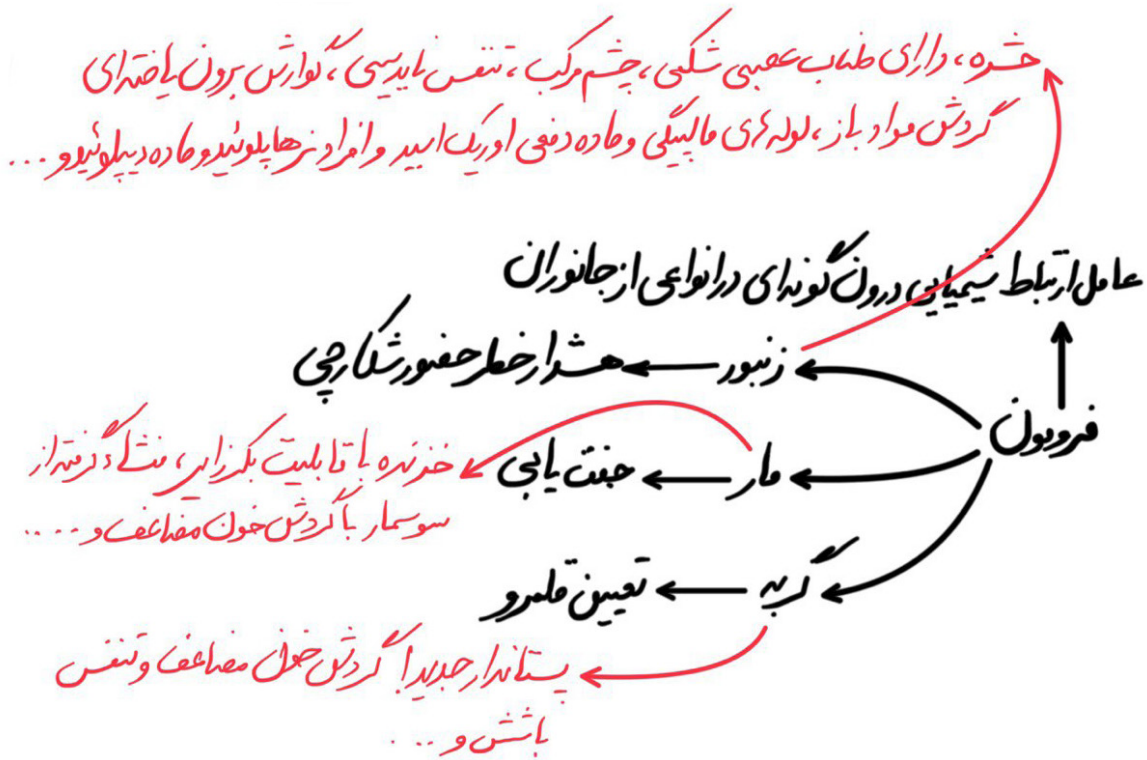 حشره، دارای طناب عصبی شکمی، چشم مرکب، تنفس نایدیسی، گوارش برون یاخته‌ای
گردش مواد باز، لوله‌های مالپیگی و ماده دفعی اوریک اسید و افراد نر هاپلوئید و ماده دیپلوئید و ...
عامل ارتباط شیمیایی درون گونه‌ای در انواعی از جانوران
زنبور
هشدار خطر حضور شکارچی
فرومون
مار
جفت یابی
خزنده با قابلیت بکرزایی، منشاء گرفته از
سوسمار با گردش خون مضاعف و ....
گربه
تعیین قلمرو
پستاندار جدید با گردش خون مضاعف و تنفس
با شش و ...